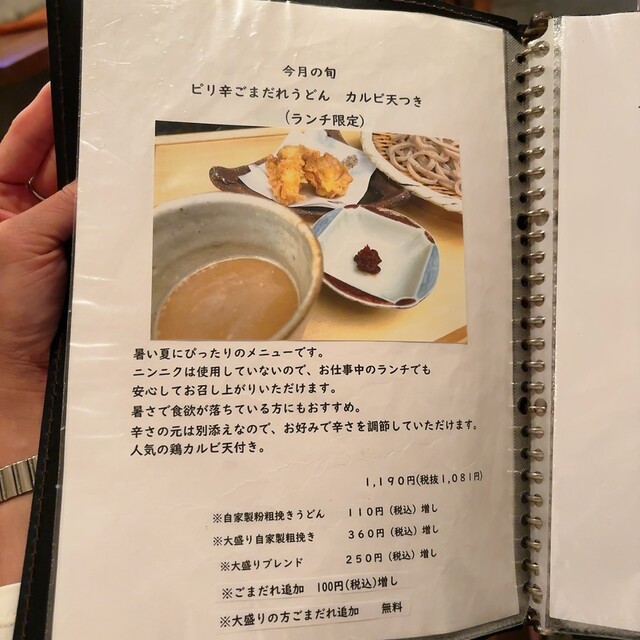 今月の旬
ピリ辛ごまだれうどん カルビ天つき
(ランチ限定)
暑い夏にぴったりのメニューです。
ニンニクは使用していないので、お仕事中のランチでも
安心してお召し上がりいただけます。
暑さで食欲が落ちている方にもおすすめ。
辛さの元は別添えなので、お好みで辛さを調節していただけます。
人気の鶏カルビ天付き。
1,190円(税抜1,081円)
※自家製粉粗挽きうどん 110円(税込)増し
※大盛り自家製粗挽き 360円(税込)増し
※大盛りブレンド 250円(税込)増し
※ごまだれ追加 100円(税込)増し
※大盛りの方ごまだれ追加 無料